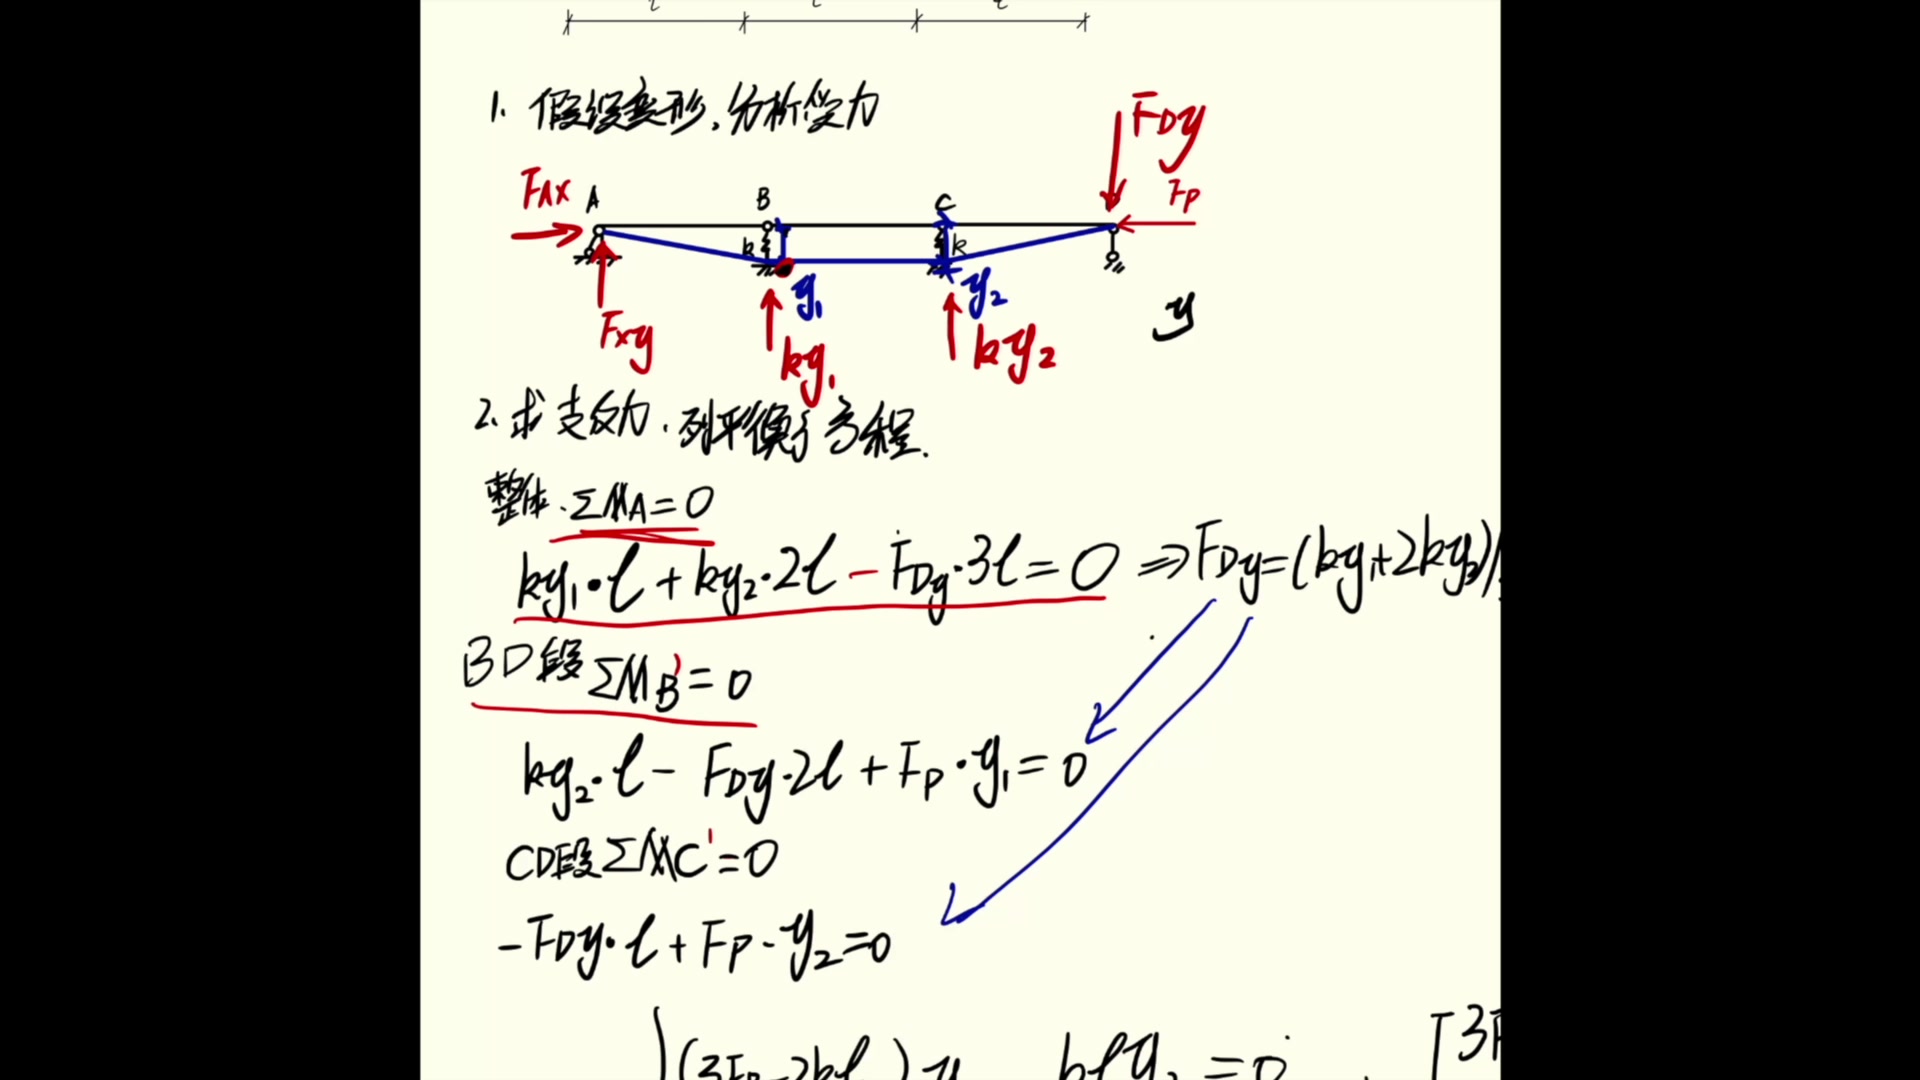 l l l
1. 假设变形,分析受力
FDy
FAX A B C FP
k k
y1 y2 y
Fxy ky1 ky2
2. 求支反力.列平衡方程.
整体.ΣMA=0
ky1·l+ky2·2l-FDy·3l=0 ⇒FDy=(ky1+2ky2)/
BD段ΣMB'=0
ky2·l-FDy·2l+FP·y1=0
CD段ΣMC'=0
-FDy·l+FP·y2=0